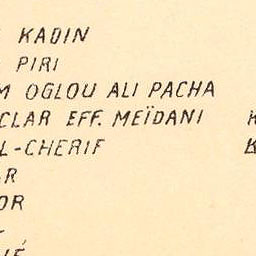 KADIN
PIRI
M OGLOU ALI PACHA
CLAR EFF. MEÏDANI K
L-CHERIF K
R
OR